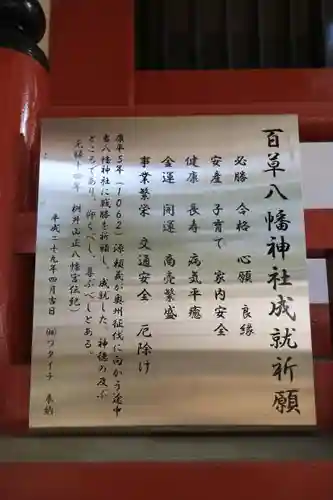 百草八幡神社成就祈願
必勝 合格 心願 良縁
安産 子育て 家内安全
健康 長寿 病気平癒
金運 開運 商売繁盛
事業繁栄 交通安全 厄除け
康平5年(1062)源頼義が奥州征伐に向かう途中
当八幡神社に戦勝を祈願し、成就した、神徳の及ぶ
ところであり、仰ぐべし、喜ぶべしとある。
元禄十四年 桝井山正八幡宮伝紀)
平成二十九年四月吉日
㈱ワタイチ 奉納